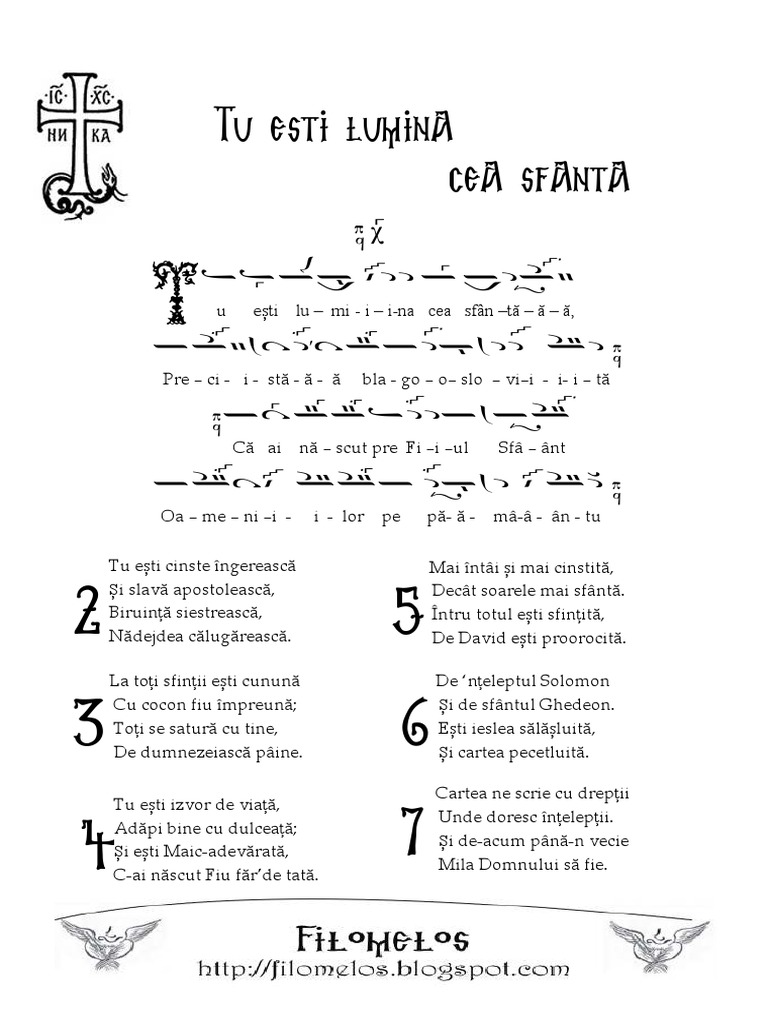 IC XC
НИ КА
Tu esti lumină
cea sfântă
Tu ești lu – mi - i – i-na cea sfân –tă – ă – ă,
Pre – ci - i - stă - ă - ă bla - go – o– slo – vi–i - i- i – tă
Că ai nă – scut pre Fi –i –ul Sfâ – ânt
Oa – me – ni –i - i - lor pe pă- ă - mâ-â - ân - tu
2
Tu ești cinste îngerească
Și slavă apostolească,
Biruință siestrească,
Nădejdea călugărească.
3
La toți sfinții ești cunună
Cu cocon fiu împreună;
Toți se satură cu tine,
De dumnezeiască pâine.
4
Tu ești izvor de viață,
Adăpi bine cu dulceață;
Și ești Maic-adevărată,
C-ai născut Fiu făr’de tată.
5
Mai întâi și mai cinstită,
Decât soarele mai sfântă.
Întru totul ești sfințită,
De David ești proorocită.
6
De ‘nțeleptul Solomon
Și de sfântul Ghedeon.
Ești ieslea sălășluită,
Și cartea pecetluită.
7
Cartea ne scrie cu drepții
Unde doresc înțelepții.
Și de-acum până-n vecie
Mila Domnului să fie.
Filomelos
http://filomelos.blogspot.com